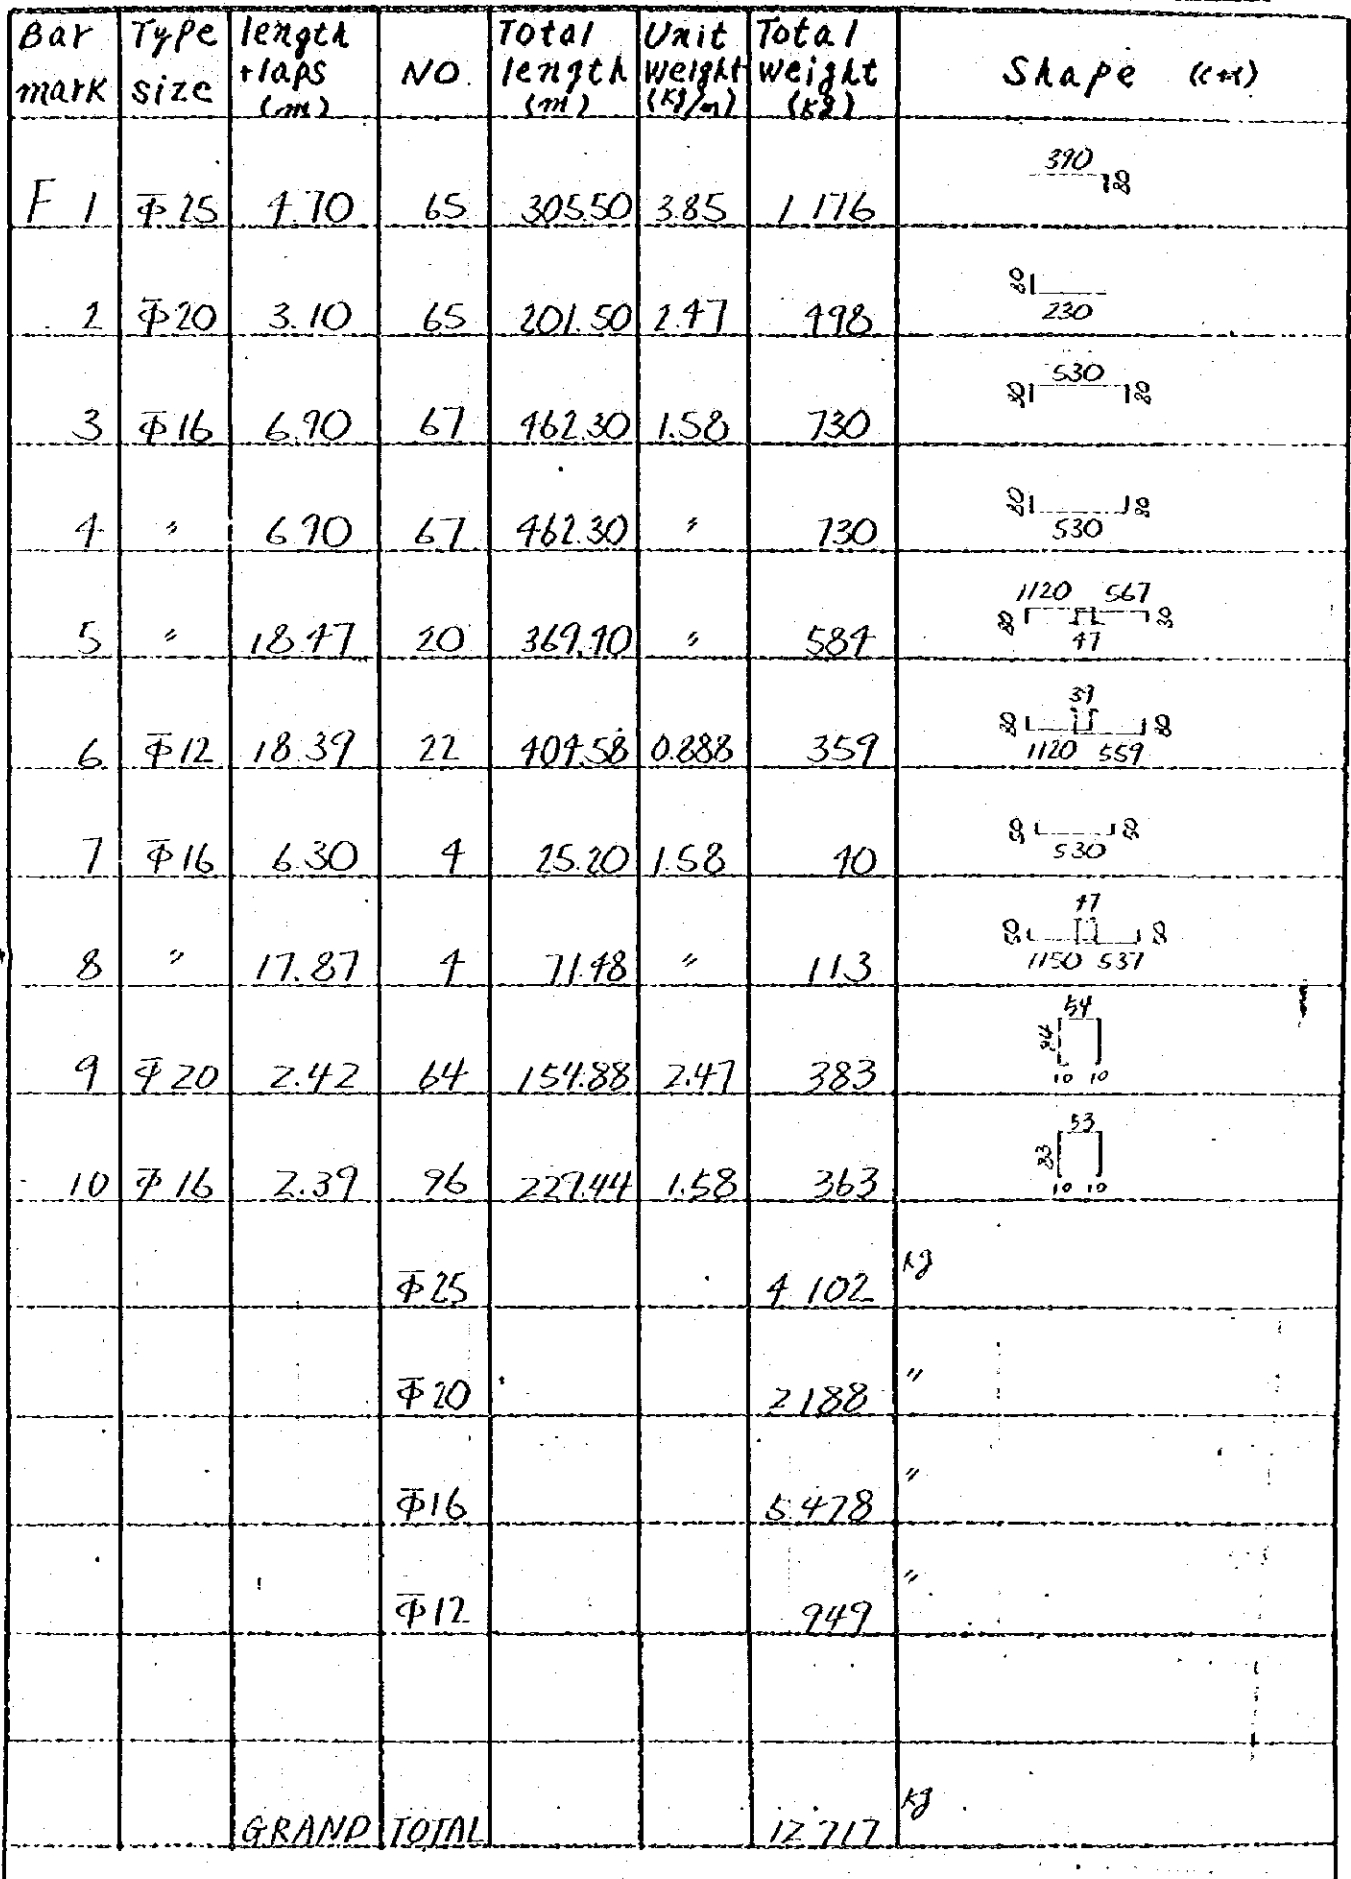 Bar mark Type size length +laps (m) NO. Total length (m) Unit weight (kg/m) Total weight (kg) Shape (cm)
F 1 Φ25 4.70 65 305.50 3.85 1 176 390 80
2 Φ20 3.10 65 201.50 2.47 498 80 230
3 Φ16 6.90 67 462.30 1.58 730 80 530 80
4 〃 6.90 67 462.30 〃 730 80 530 80
5 〃 18.47 20 369.40 〃 584 80 1120 567 80 47
6 Φ12 18.39 22 404.58 0.888 359 39 80 80 1120 559
7 Φ16 6.30 4 25.20 1.58 40 530
8 〃 17.87 4 71.48 〃 113 47 1150 537
9 Φ20 2.42 64 154.88 2.47 383 54 84 10 10
10 Φ16 2.39 96 229.44 1.58 363 53 83 10 10
Φ25 4 102 kg
Φ20 2 188 〃
Φ16 5 478 〃
Φ12 949 〃
GRAND TOTAL 12 717 kg